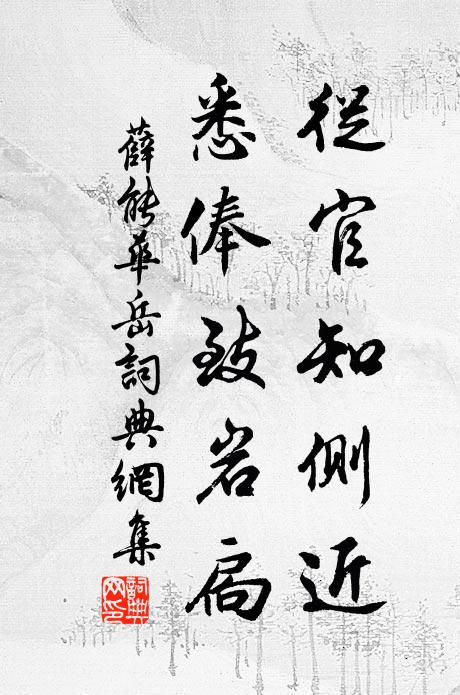 從官知側近
悉俸致岩扃
薛能華岳詞典網集
詞典網印